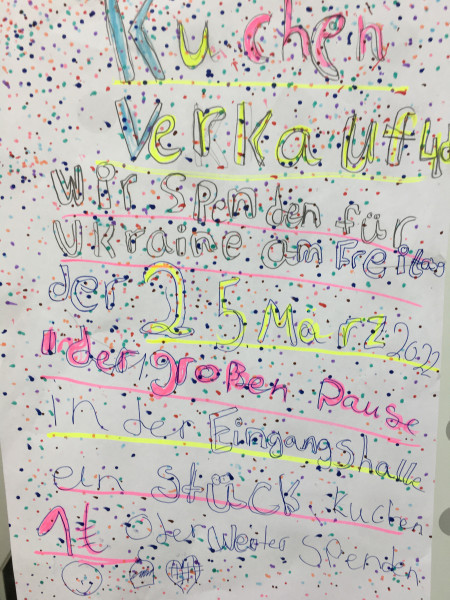 Kuchen
Verkauf
Wir spenden für
Ukraine am Freitag
der 25 März 2022
In der großen Pause
in der Eingangshalle
ein Stück Kuchen
1€ oder weiter spenden